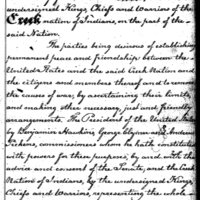 undersigned Kings, Chiefs and Warriors of the
Creek nation of Indians, on the part of the
said Nation.
The parties being desirous of establishing
permanent peace and friendship between the
United States and the said Creek Nation and
the citizens and members thereof and to remove
the causes of war, by ascertaining their limits,
and making other necessary, just and friendly
arrangements. The President of the United States
by Benjamin Hawkins, George Clymer and Andrew
Pickens, commissioners whom he hath constituted
with powers for these purposes, by and with the
advice and consent of the Senate, and the Creek
Nation of Indians, by the undersigned Kings,
Chiefs and Warriors, representing the whole